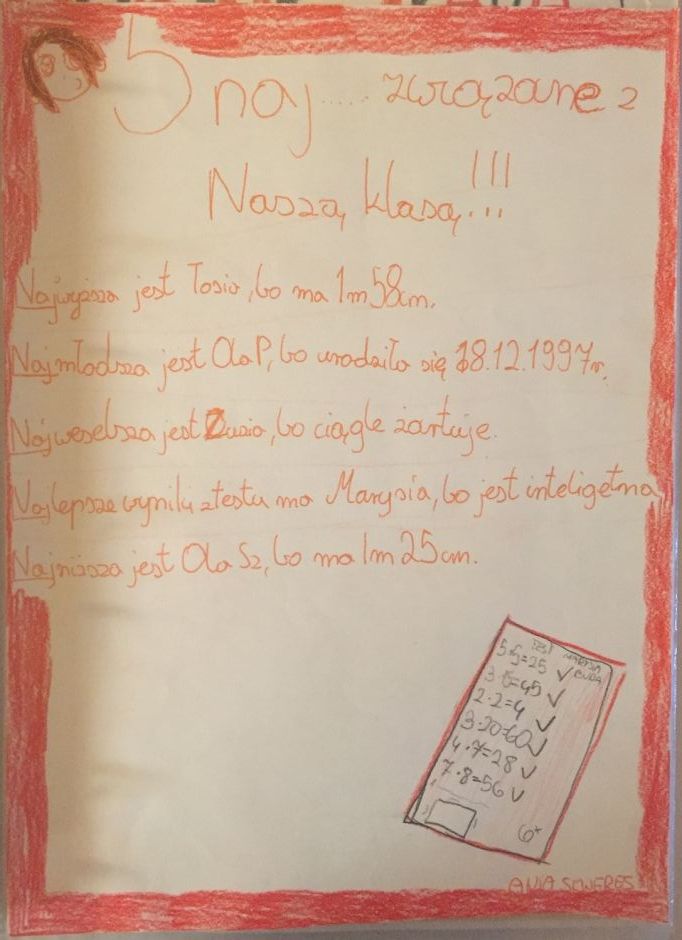 5 naj..... związane z
Naszą klasą!!!
Najwyższa jest Tosia, bo ma 1m 58cm.
Najmłodsza jest Ola P, bo urodziła się 18.12.1997r.
Najweselsza jest Zuzia, bo ciągle żartuje.
Najlepsze wyniki z testu ma Marysia, bo jest inteligetna
Najniższa jest Ola Sz, bo ma 1m 25cm.
TEST MARYSIA
5·5=25 ✓
3·15=45 ✓
2·2=4 ✓
3·20=60 ✓
4·7=28 ✓
7·8=56 ✓
6+
ANIA